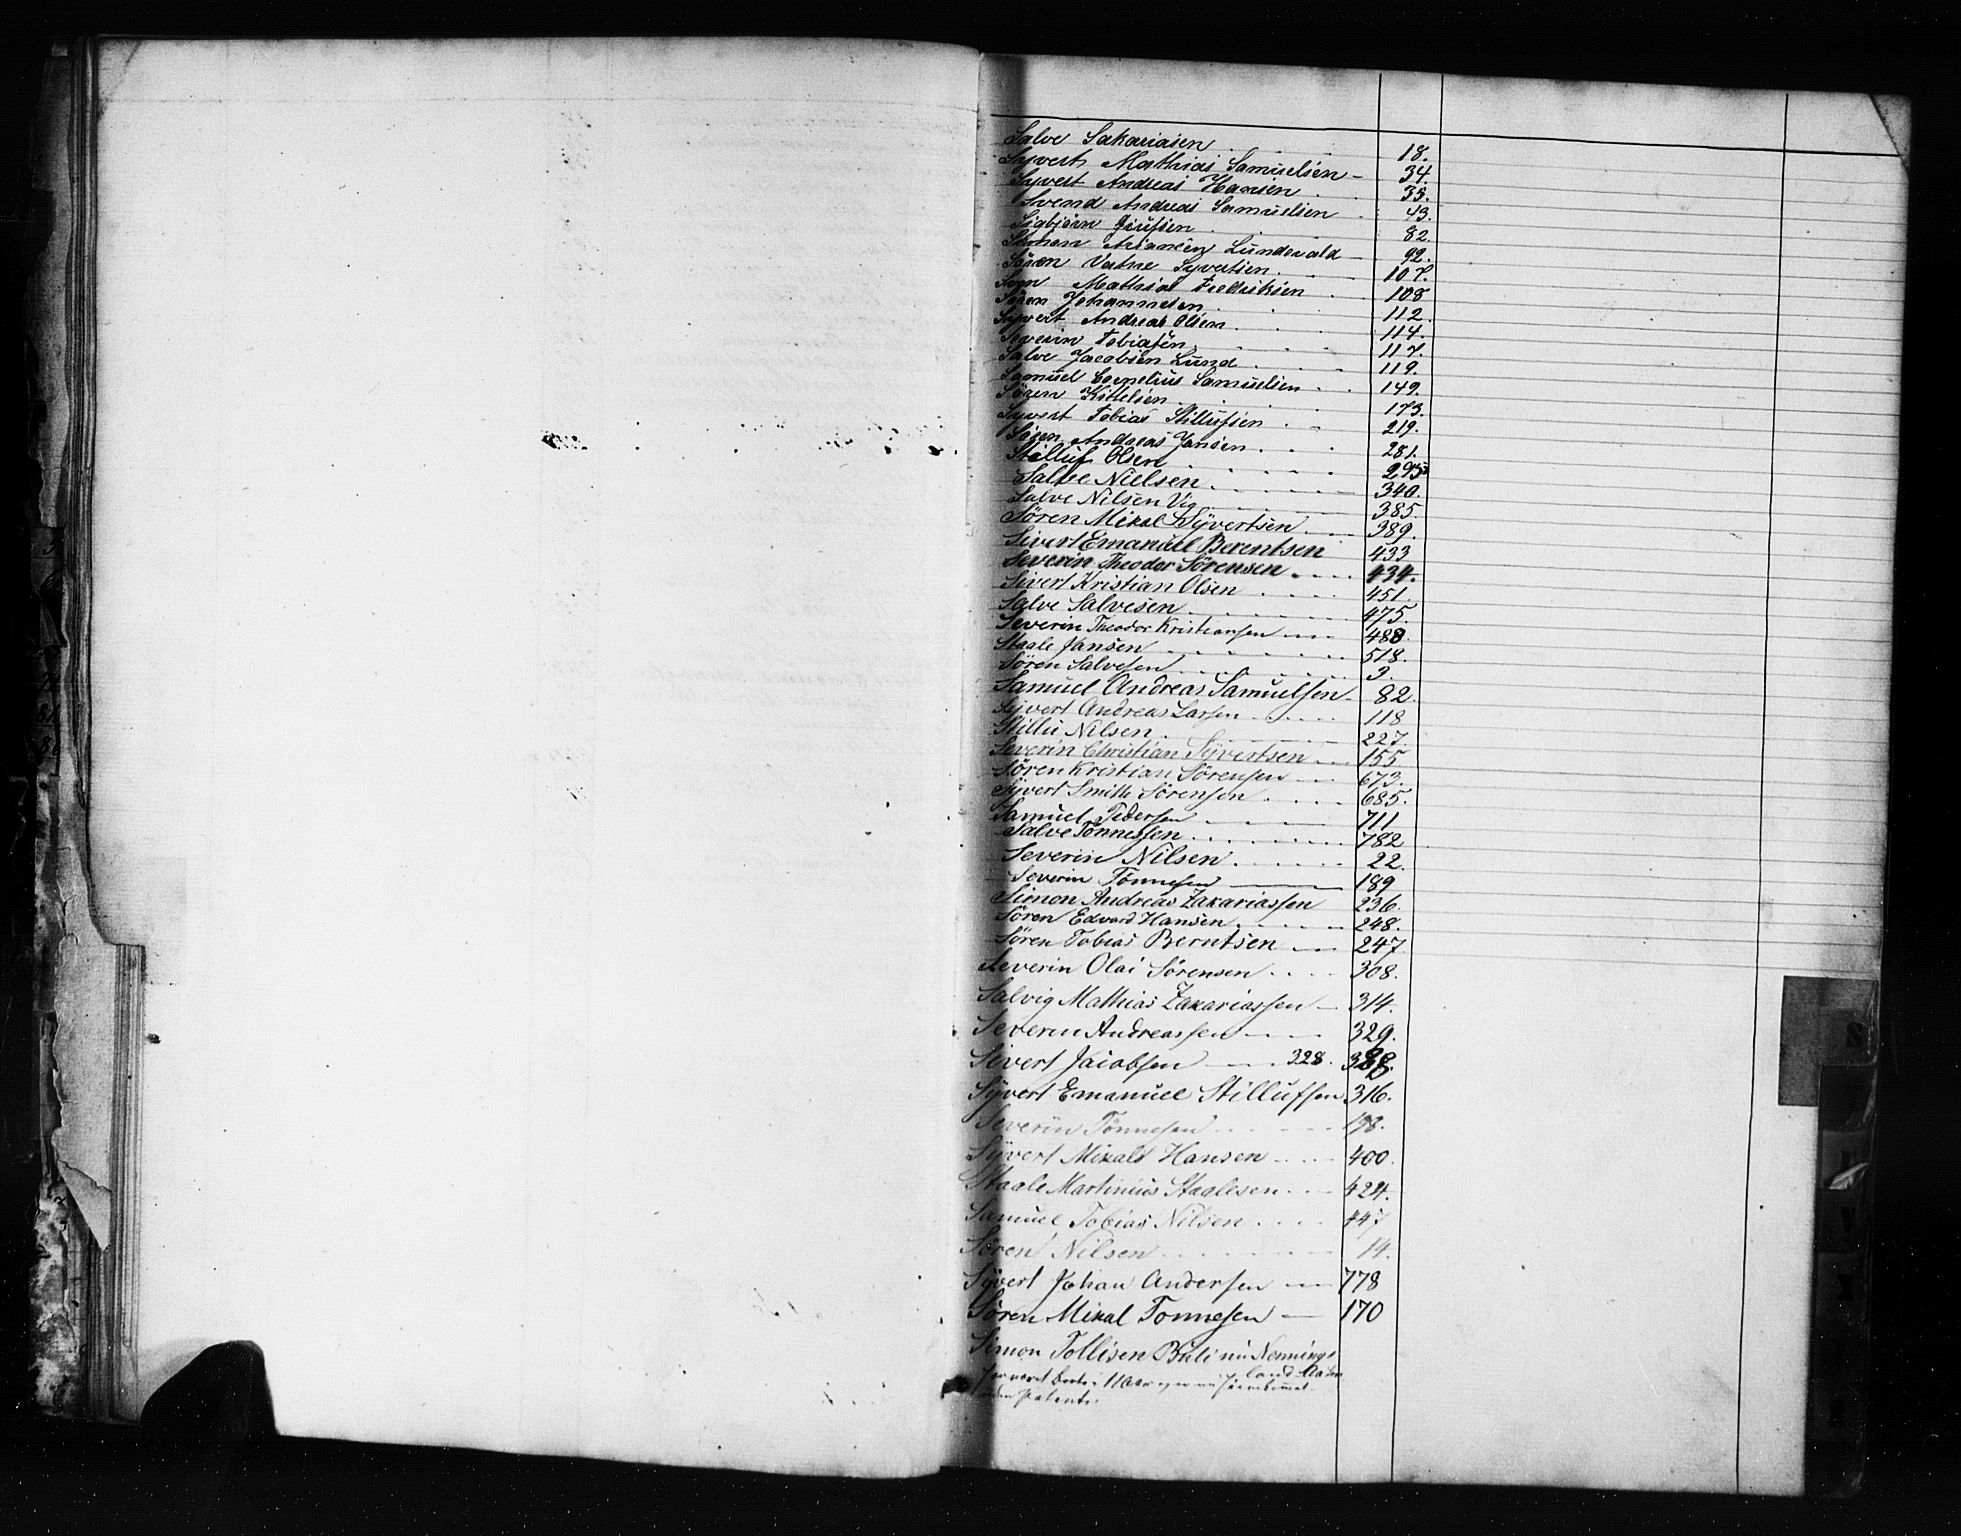 Salve Sakariasen . . . 18.
Syvert Mathias Samuelsen — 34.
Syvert Andreas Hansen . 35.
Svend Andreas Samuelsen . 43.
Sigbjørn . . . 82.
Lundevold — 92.
Søren Vatne Syvertsen . . . 107.
Mathias Fredriksen . . 108
Søren Johannesen . . . 112.
Syvert Andreas Olsen . . . 114.
Severin Tobiasen . . . 117.
Salve Jacobsen Lund . . . 119.
Samuel Cornelius Samuelsen . . 149.
Søren Kittelsen . . . 173.
Syvert Tobias Stillufsen . . 219.
Søren Andreas Jansen . . . 281.
Stilluf Olsen . . . 295
Salve Nielsen . . . 340.
Salve Nilsen Vig . . . 385.
Søren Mikal Syvertsen . . . 389.
Sivert Emanuel Berentsen 433
Severin Theodor Sørensen . . . 434.
Sivert Kristian Olsen . . . 451.
Salve Salvesen . . . 475.
Severin Theodor Kristiansen . . . 488
Staale Jansen . . . 518.
Søren Salvesen . . . 3.
Samuel Andreas Samuelsen . 82.
Syvert Andreas Larsen . . . 118
Stillu Nilsen . . . 227.
Severin Christian Syvertsen . . . 155
Søren Kristian Sørensen . . . 673.
Syvert Smith Sørensen . . . 685.
Samuel Pedersen . . . 711
Salve Tønnessen . . . 782
Severin Nilsen . . . 22.
Severin Tønnesen — 189
Simon Andreas Zakariassen 236.
Søren Edvard Hansen . . . 248.
Søren Tobias Berntsen — 247
Severin Olai Sørensen . . . 308.
Salvig Mathias Zakariassen — 314.
Severin Andreassen — 329.
Sivert Jacobsen — 328.
Syvert Emanuel Stillufsen 316.
Severin Tønnesen . . . 198.
Syvert Mikal Hansen . . . 400.
Staale Martinius Staalesen . . . 424.
Samuel Tobias Nilsen . . . 447
Søren Nilsen . . . 14.
Syvert Johan Andersen — 778
Søren Mikal Tonnesen — 170
Simon Tollisen nu